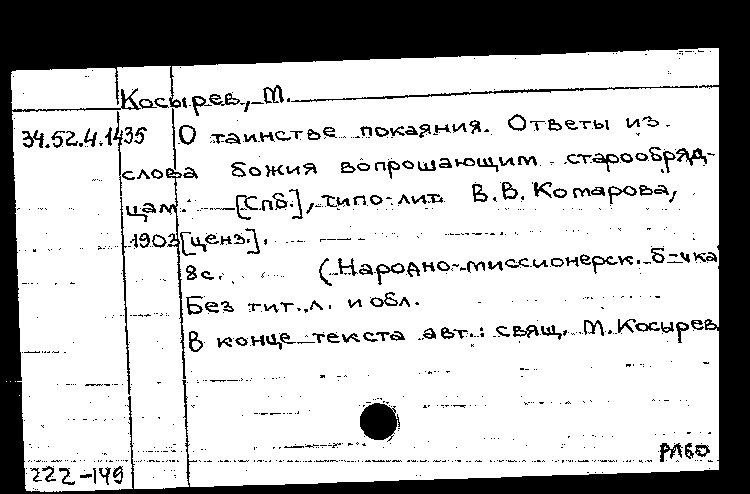 Косырев, М.
34.52.4.1435 О таинстве покаяния. Ответы из
слова божия вопрошающим старообряд-
цам. [Спб.], типо-лит. В.В. Комарова,
1903 [ценз.].
8с. (Народно-миссионерск. б-чка
Без тит. л. и обл.
В конце текста авт.: свящ. М. Косырев
222-149